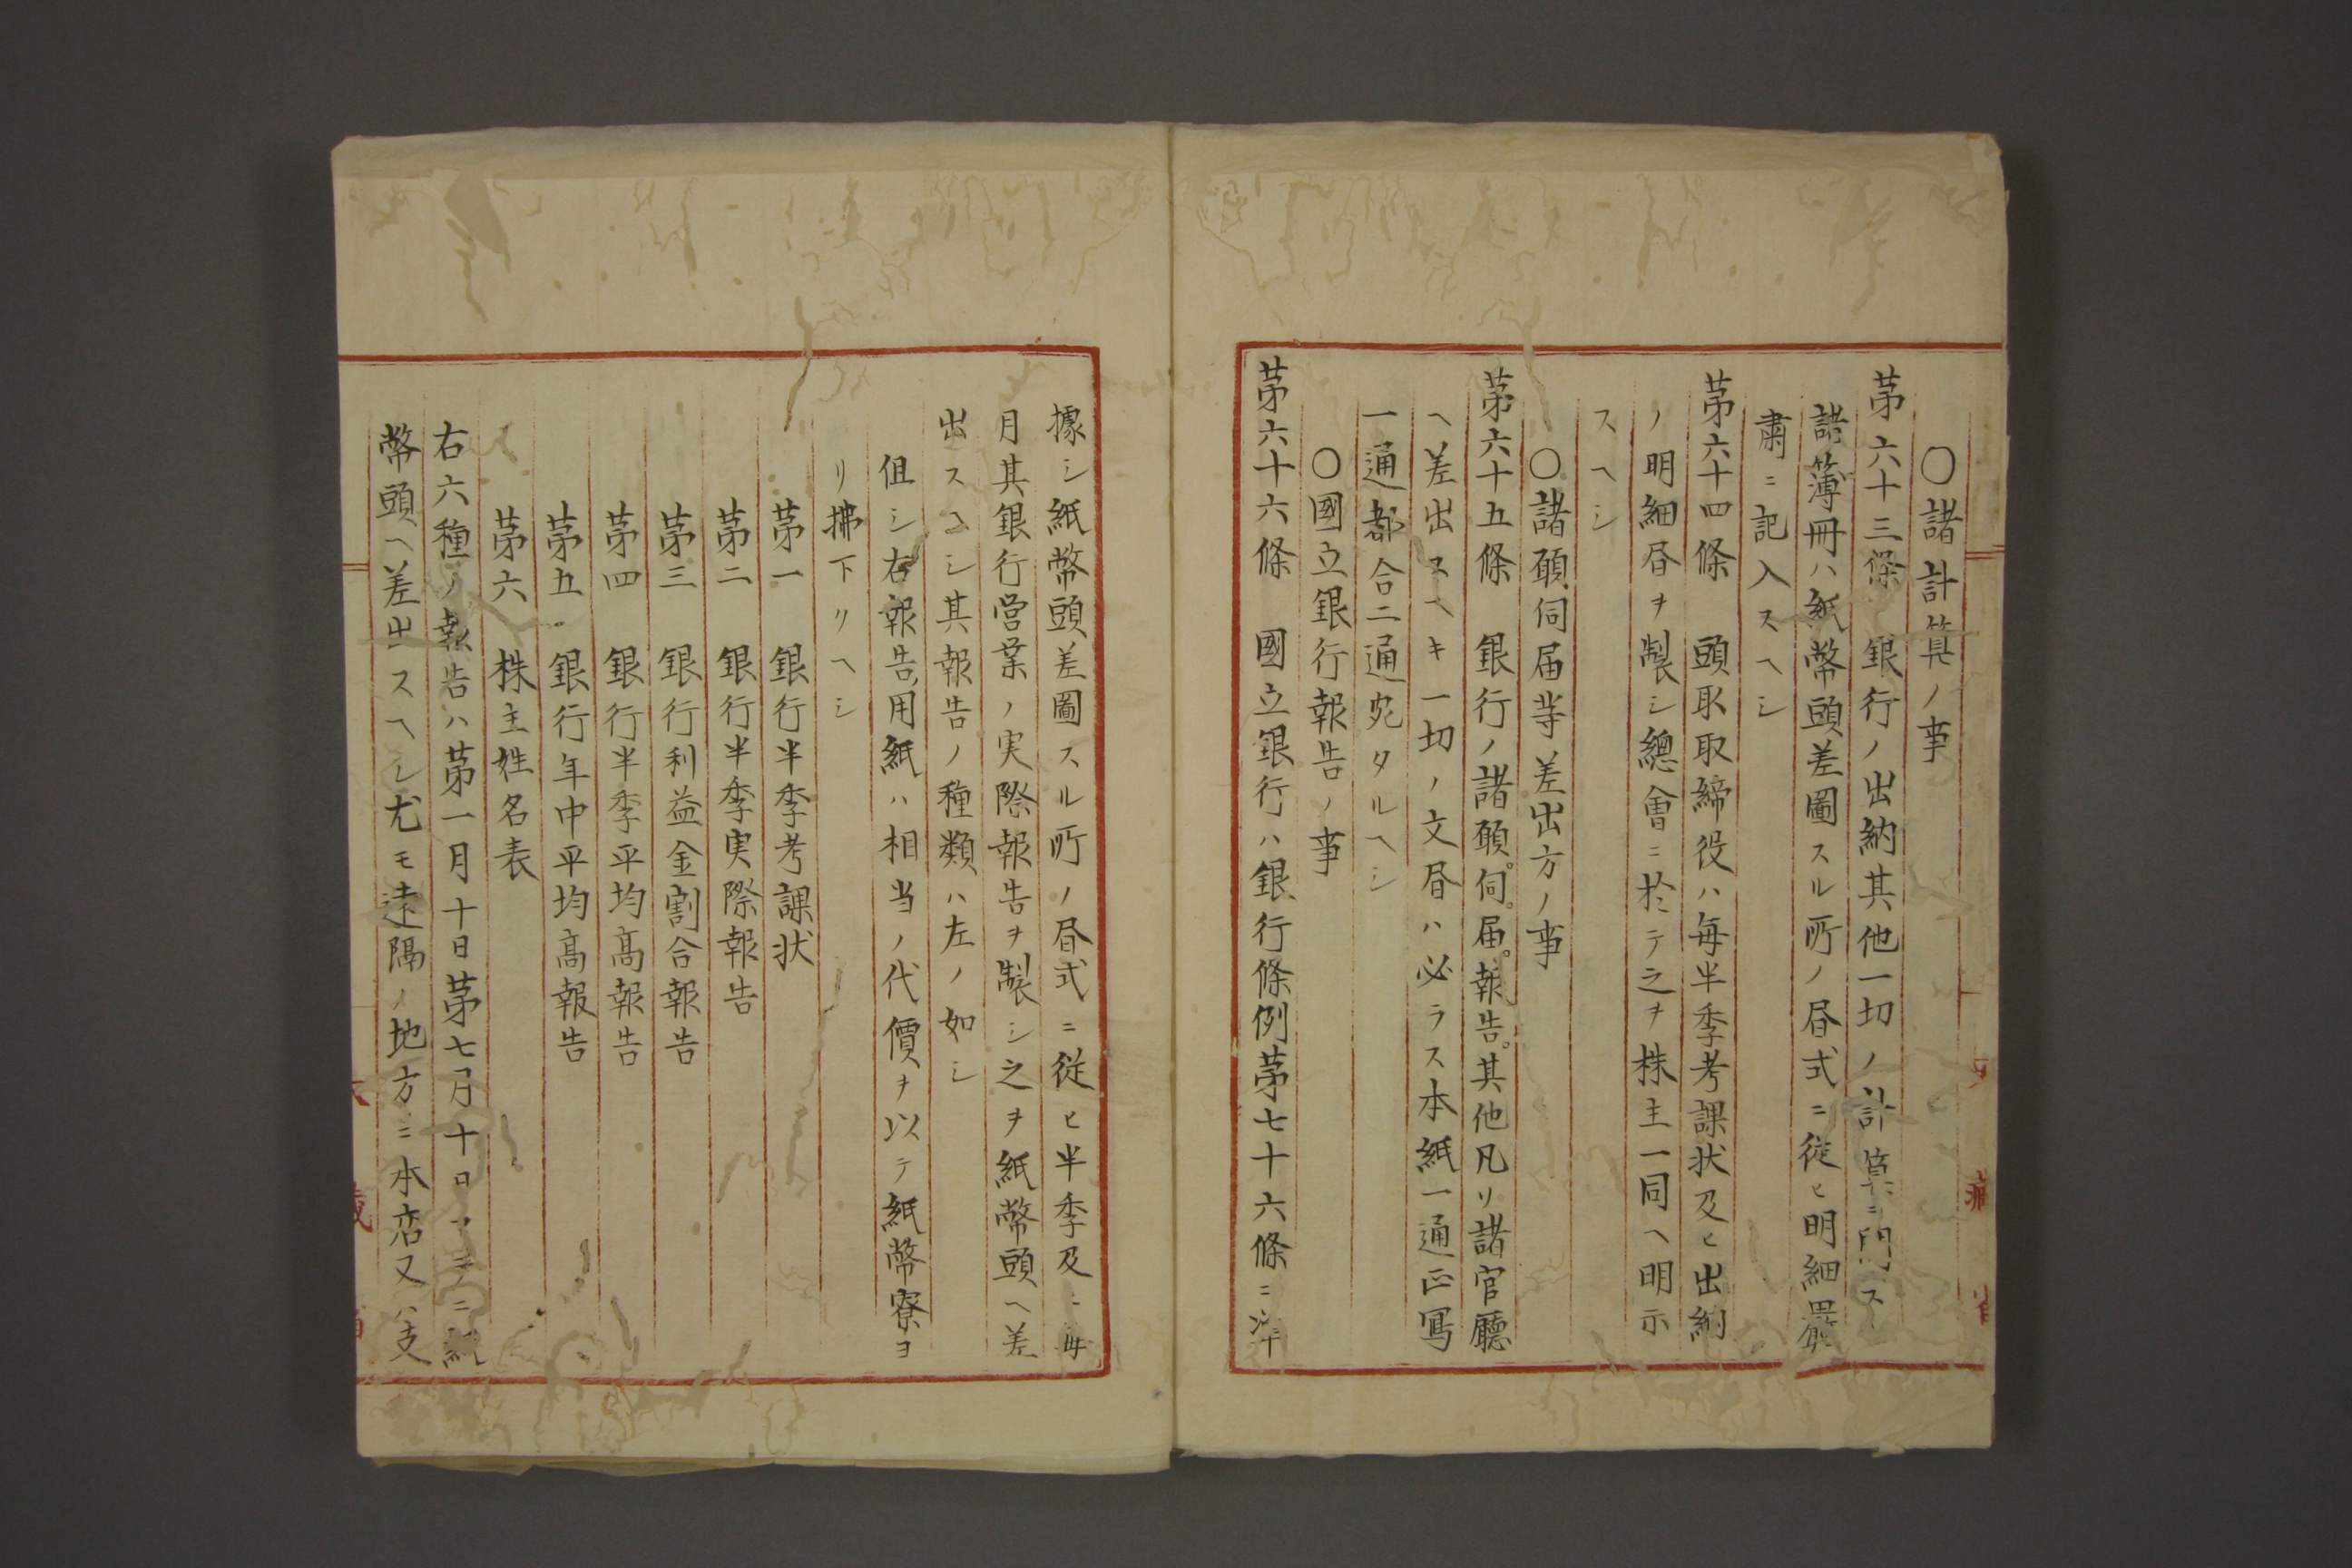 〇諸計算ノ事
第六十三條 銀行ノ出納其他一切ノ計算ニ門スル
諸簿冊ハ紙幣頭差圖スル所ノ書式ニ従ヒ明細嚴
肅ニ記入スヘシ
第六十四條 頭取取締役ハ毎半季考課状及ヒ出納
ノ明細書ヲ製シ總會ニ於テ之ヲ株主一同ヘ明示
スヘシ
〇諸願伺届等差出方ノ事
第六十五條 銀行ノ諸願。伺。届。報告。其他凡リ諸官廳
ヘ差出スヘキ一切ノ文書ハ必ラス本紙一通正寫
一通都合二通宛タルヘシ
〇國立銀行報告ノ事
第六十六條 國立銀行ハ銀行條例第七十六條ニ準
據シ紙幣頭差圖スル所ノ書式ニ従ヒ半季及ニ毎
月其銀行営業ノ実際報告ヲ製シ之ヲ紙幣頭ヘ差
出スヘシ其報告ノ種類ハ左ノ如シ
但シ右報告用紙ハ相当ノ代價ヲ以テ紙幣寮ヨ
リ拂下クヘシ
第一 銀行半季考課状
第二 銀行半季実際報告
第三 銀行利益金割合報告
第四 銀行半季平均高報告
第五 銀行年中平均高報告
第六 株主姓名表
右六種ノ報告ハ第一月十日第七月十日マテニ紙
幣頭ヘ差出スヘシ尤モ遠隔ノ地方ニ本店又ハ支
大藏省